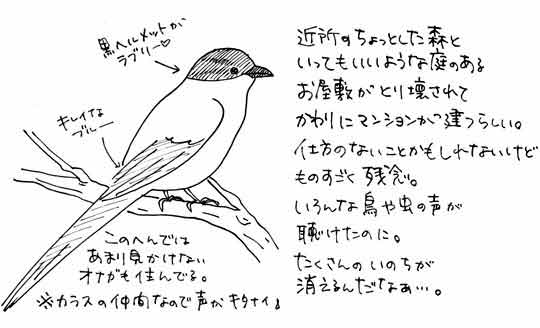 黒ヘルメットが
ラブリー♡
キレイな
ブルー
このへんでは
あまり見かけない
オナガも住んでる。
※カラスの仲間なので声がキタナイ♩
近所のちょっとした森と
いってもいいような庭のある
お屋敷がとり壊されて
かわりにマンションが建つらしい。
仕方のないことかもしれないけど
ものすごく残念。
いろんな鳥や虫の声が
聴けたのに。
たくさんのいのちが
消えるんだなぁ…。